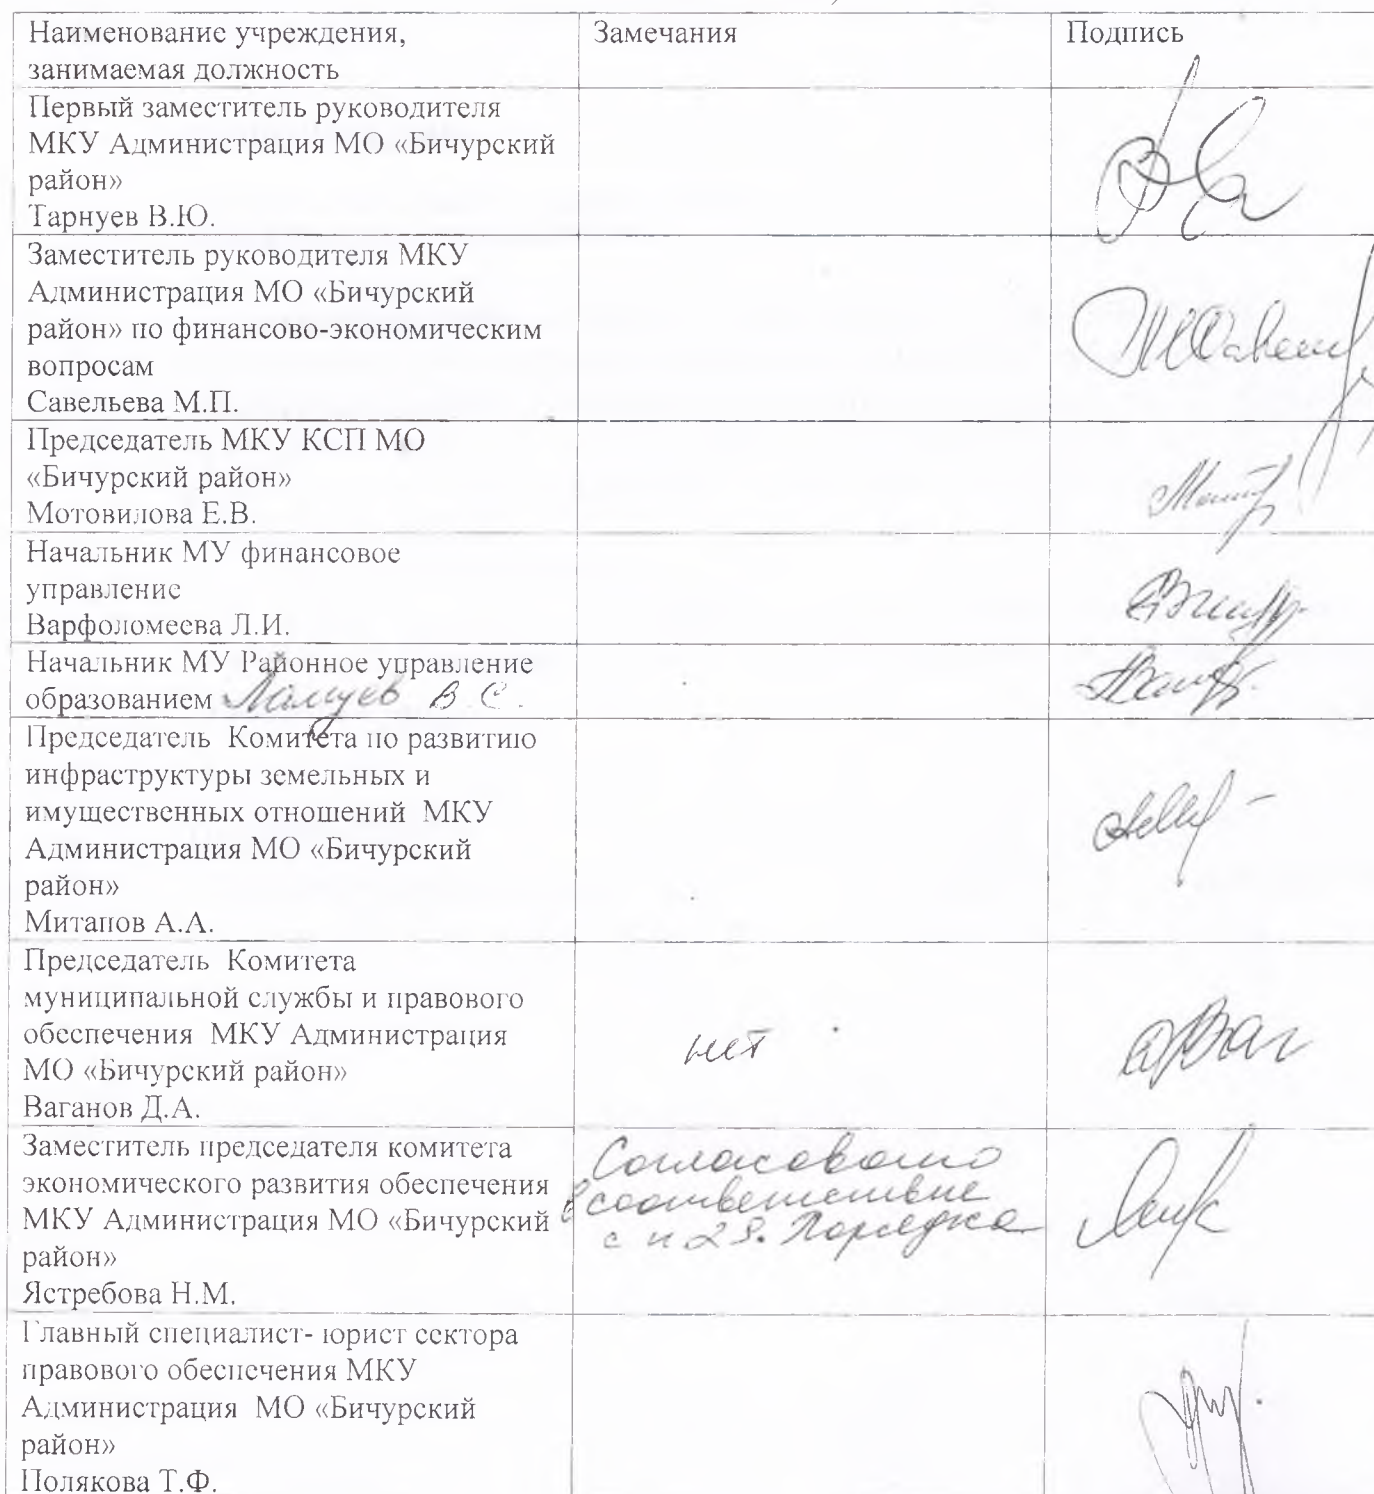 Наименование учреждения,
занимаемая должность
Замечания
Подпись
Первый заместитель руководителя
МКУ Администрация МО «Бичурский
район»
Тарнуев В.Ю.
Заместитель руководителя МКУ
Администрация МО «Бичурский
район» по финансово-экономическим
вопросам
Савельева М.П.
Председатель МКУ КСП МО
«Бичурский район»
Мотовилова Е.В.
Начальник МУ финансовое
управление
Варфоломеева Л.И.
Начальник МУ Районное управление
образованием В С.
Председатель Комитета по развитию
инфраструктуры земельных и
имущественных отношений МКУ
Администрация МО «Бичурский
район»
Митапов А.А.
Председатель Комитета
муниципальной службы и правового
обеспечения МКУ Администрация
МО «Бичурский район»
Ваганов Д.А.
нет
Заместитель председателя комитета
экономического развития обеспечения
МКУ Администрация МО «Бичурский
район»
Ястребова Н.М.
Согласовано
в соответствие
с п Порядка
Главный специалист- юрист сектора
правового обеспечения МКУ
Администрация МО «Бичурский
район»
Полякова Т.Ф.